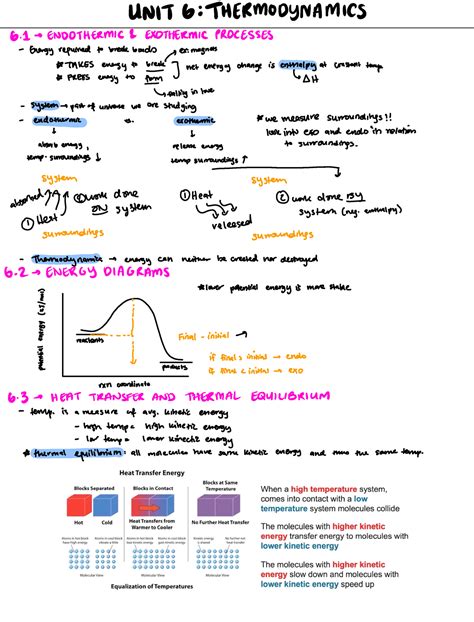 UNIT 6: THERMODYNAMICS
6.1 → ENDOTHERMIC & EXOTHERMIC PROCESSES
- Energy required to break bonds
ex. magnets
* TAKES energy to break
* FREES energy to form
net energy change is enthalpy at constant temp.
ΔH
falling in love
- System → part of universe we are studying
- endothermic vs. exothermic
absorb energy, release energy
temp. surroundings ↓ temp surroundings ↑
* we measure surroundings!!
look into exo and endo in relation
to surroundings.
System
absorbed
① Heat
② work done
ON system
surroundings
System
① Heat
released
② work done BY
system (neg. enthalpy)
surroundings
- Thermodynamics → energy can neither be created nor destroyed
6.2 → ENERGY DIAGRAMS
* lower potential energy is more stable
potential energy (kJ/mol)
reactants
products
rxn coordinate
Final - initial
if final > initial → endo
if final < initial → exo
6.3 → HEAT TRANSFER AND THERMAL EQUILIBRIUM
- temp. is a measure of avg. kinetic energy
- high temp = high kinetic energy
- low temp = lower kinetic energy
* thermal equilibrium: all molecules have same kinetic energy and thus the same temp.
Heat Transfer Energy
Blocks Separated
Blocks in Contact
Blocks at Same
Temperature
Hot
Cold
Heat Transfers from
Warmer to Cooler
No Further Heat Transfer
Molecular View
Molecular View
Molecular View
Equalization of Temperatures
When a high temperature system,
comes into contact with a low
temperature system molecules collide
The molecules with higher kinetic
energy transfer energy to molecules with
lower kinetic energy
The molecules with higher kinetic
energy slow down and molecules with
lower kinetic energy speed up